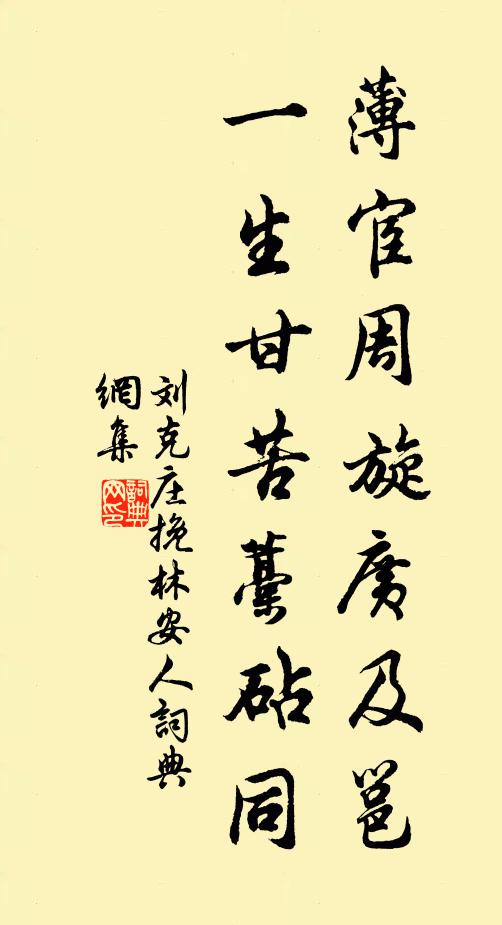 薄宦周旋廣及邕
一生甘苦藁砧同
刘克庄挽林安人詞典
網集
詞典
网印